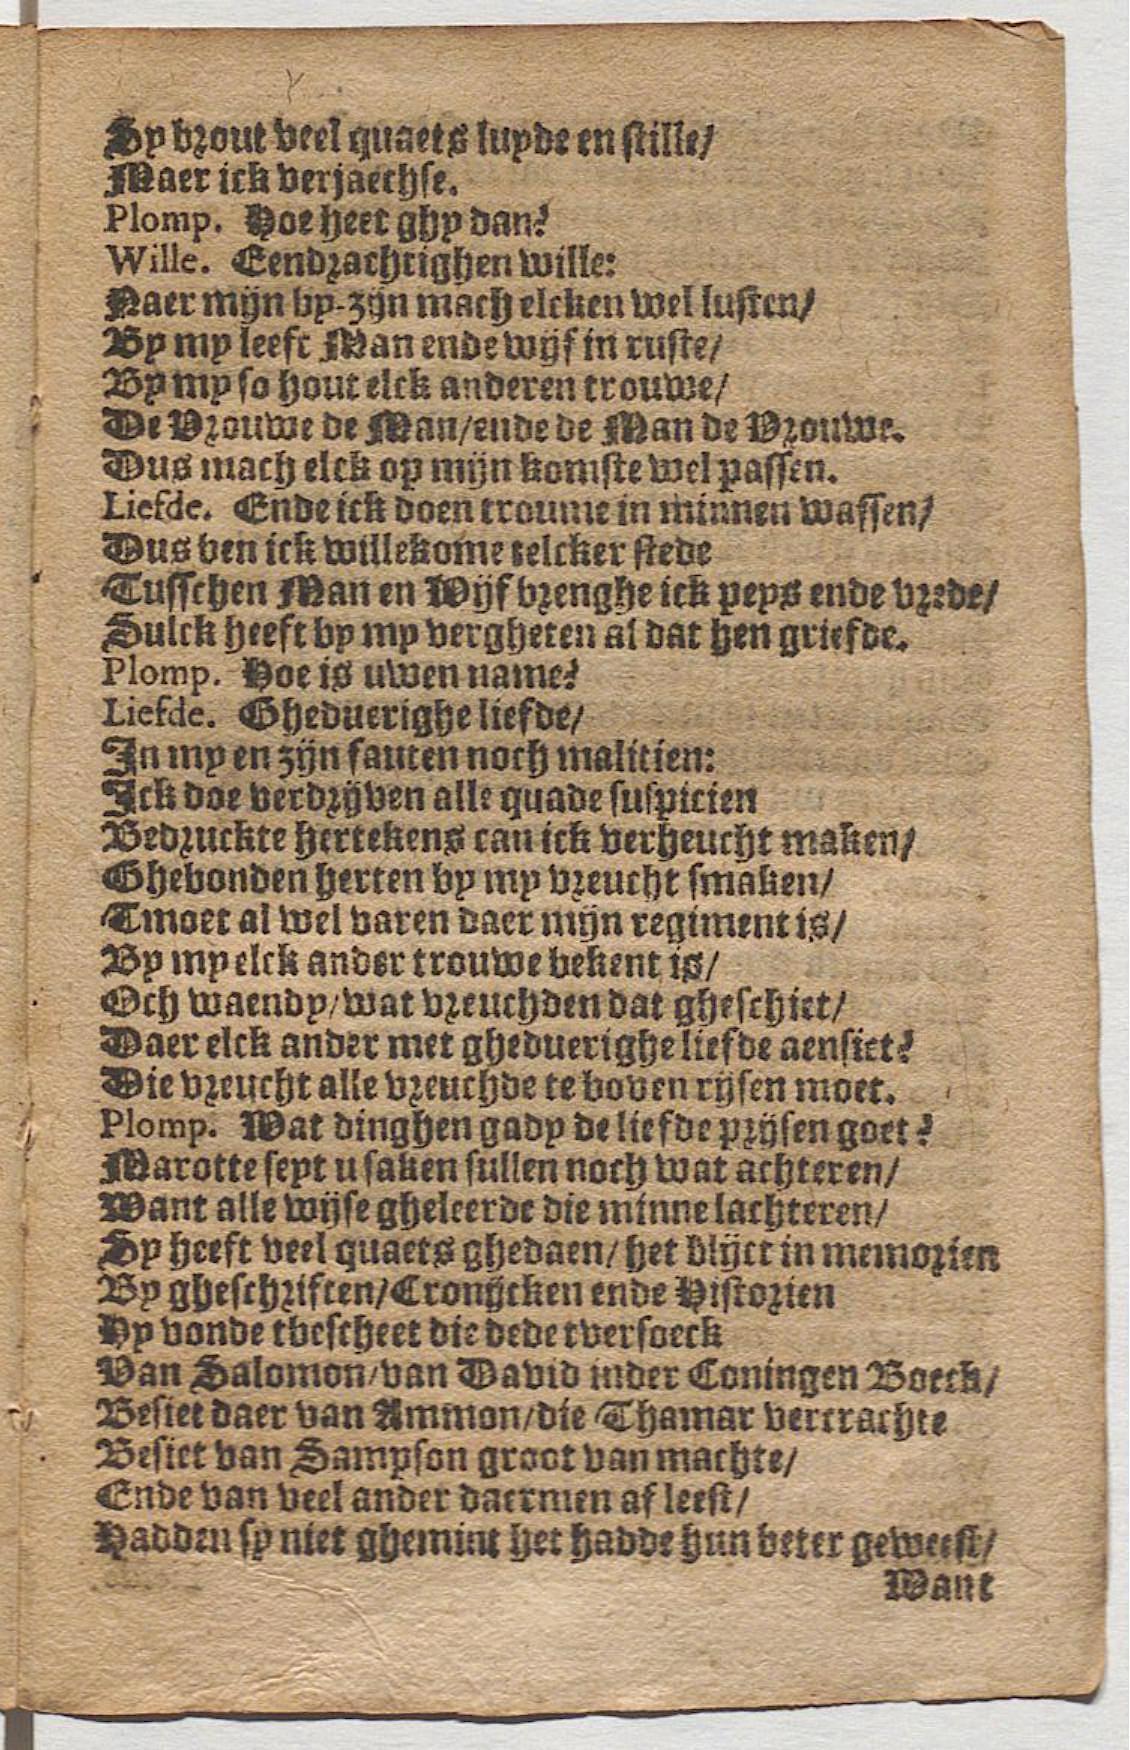 Sy brout veel quaets luyde en stille/
Maer ick verjaechse.
Plomp. Hoe heet ghy dan?
Wille. Eendrachtighen wille:
Naer mijn by-zijn mach elcken wel lusten/
By my leeft Man ende wijf in ruste/
By my so hout elck anderen trouwe/
De Vrouwe de Man/ende de Man de Vrouwe.
Dus mach elck op mijn komste wel passen.
Liefde. Ende ick doen trouwe in minnen wassen/
Dus ben ick willekome telcker stede
Tusschen Man en Wijf brenghe ick peys ende vrede/
Sulck heeft by my vergheten al dat hen griefde.
Plomp. Hoe is uwen name?
Liefde. Gheduerighe liefde/
In my en zijn fauten noch malitien:
Ick doe verdrijven alle quade suspicien
Bedruckte hertekens can ick verheucht maken/
Ghebonden herten by my vreucht smaken/
Tmoet al wel varen daer mijn regiment is/
By my elck ander trouwe bekent is/
Och waendy/wat vreuchden dat gheschiet/
Daer elck ander met gheduerighe liefde aensiet?
Die vreucht alle vreuchde te boven rijsen moet.
Plomp. Wat dinghen gady de liefde prijsen goet?
Marotte seyt u saken sullen noch wat achteren/
Want alle wijse gheleerde die minne lachteren/
Sy heeft veel quaets ghedaen/het blijct in memorien
By gheschriften/Cronijcken ende Historien
Hy vonde tbescheet die dede tversoeck
Van Salomon/van David inder Coningen Boeck/
Besiet daer van Ammon/die Thamar vercrachte
Besiet van Sampson groot van machte/
Ende van veel ander daermen af leest/
Hadden sy niet ghemint het hadde hun beter geweest/
Want